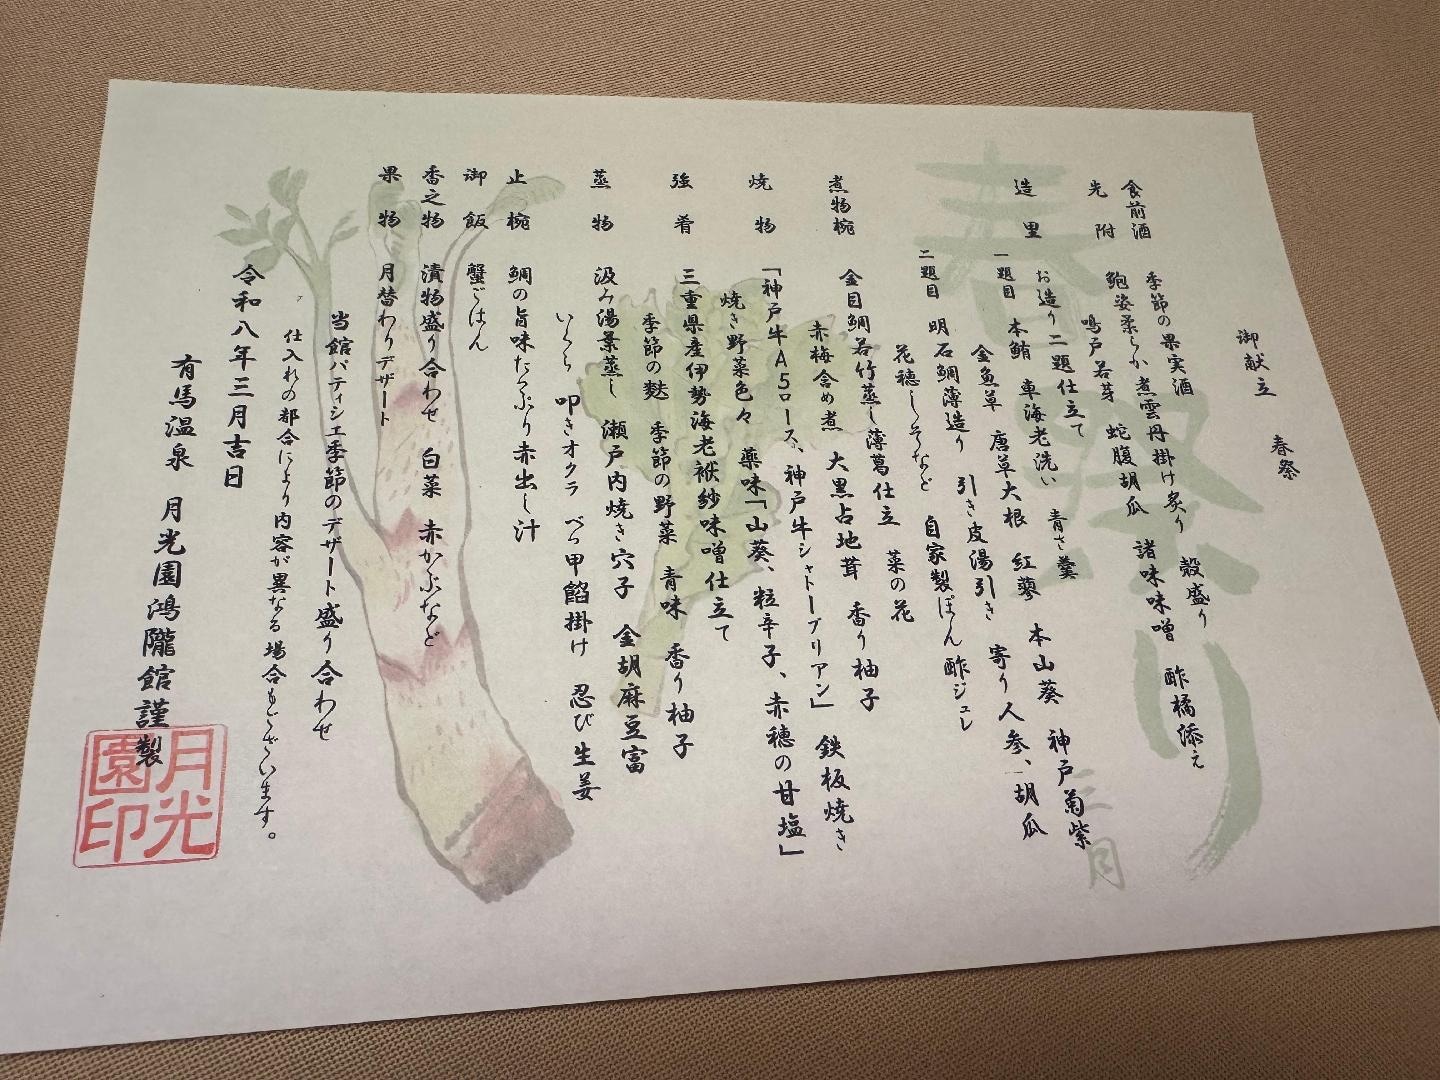 御献立　春祭
食前酒　季節の果実酒
先附　鮑姿柔らか煮雲丹掛け炙り　殻盛り
鳴戸若芽　蛇腹胡瓜　諸味味噌　酢橘添え
造里　お造り二題仕立て
一題目　本鮪　車海老洗い　青さ羹　本山葵　神戸菊紫
金魚草　唐草大根　紅蓼　寄り人参、胡瓜
二題目　明石鯛薄造り　引き皮湯引き
花穂しそなど　自家製ぽん酢ジュレ
煮物椀　金目鯛若竹蒸し薄葛仕立　菜の花
赤梅含め煮　大黒占地茸　香り柚子
焼物　「神戸牛A5ロース、神戸牛シャトーブリアン」　鉄板焼き
焼き野菜色々　薬味「山葵、粒辛子、赤穂の甘塩」
強肴　三重県産伊勢海老袱紗味噌仕立て
季節の麩　季節の野菜　青味　香り柚子
蒸物　汲み湯葉蒸し　瀬戸内焼き穴子　金胡麻豆富
いくら　叩きオクラ　べっ甲餡掛け　忍び生姜
止椀　鯛の旨味たっぷり赤出し汁
御飯　蟹ごはん
香之物　漬物盛り合わせ　白菜　赤かぶなど
果物　月替わりデザート
当館パティシエ季節のデザート盛り合わせ
仕入れの都合により内容が異なる場合もございます。
令和八年三月吉日
有馬温泉　月光園鴻朧館謹製
月光園印
春祭り
三月